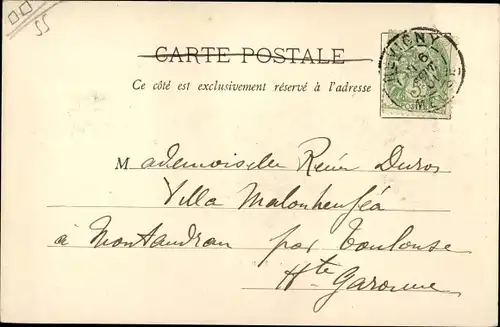 55
CARTE POSTALE
Ce côté est exclusivement réservé à l'adresse
REVIGNY
MEUSE
Mademoiselle Duros
Villa
à Montaudran par Toulouse
Hte Garonne